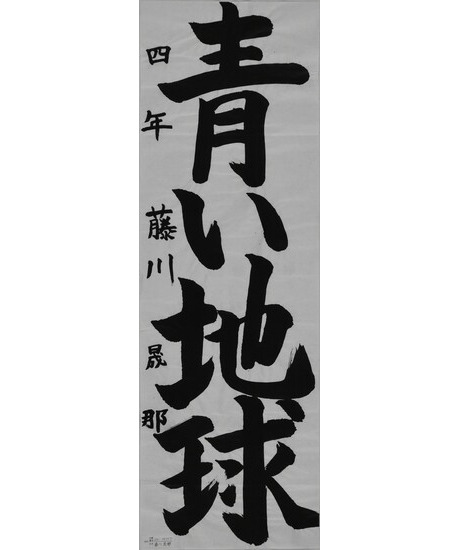 青い地球
四年 藤川晟那